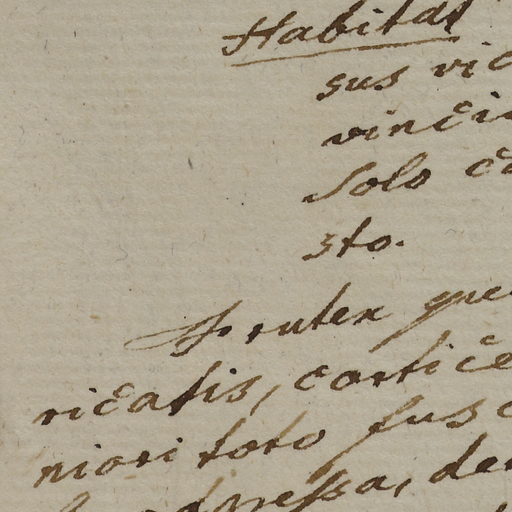 Habitat
sus vic
vinci
solo ca
sto.
Frutex
ricatis, cortice
niori toto fusc
adpressa, den